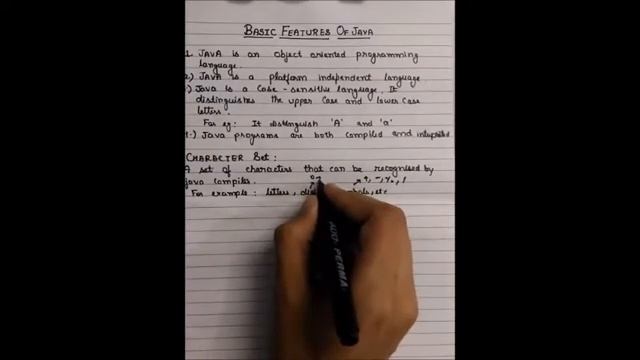 BASIC FEATURES OF JAVA
1. JAVA is an object oriented programming
language.
2.) JAVA is a platform independent language
) Java is a case-sensitive language. It
distinguishes the upper case and lower case
letters.
For eg: It distinguish 'A' and 'a'
4.) Java programs are both compiled and
CHARACTER SET:
A set of characters that can be recognised by
java compiler.
For example: letters, etc
AUDI PERMA